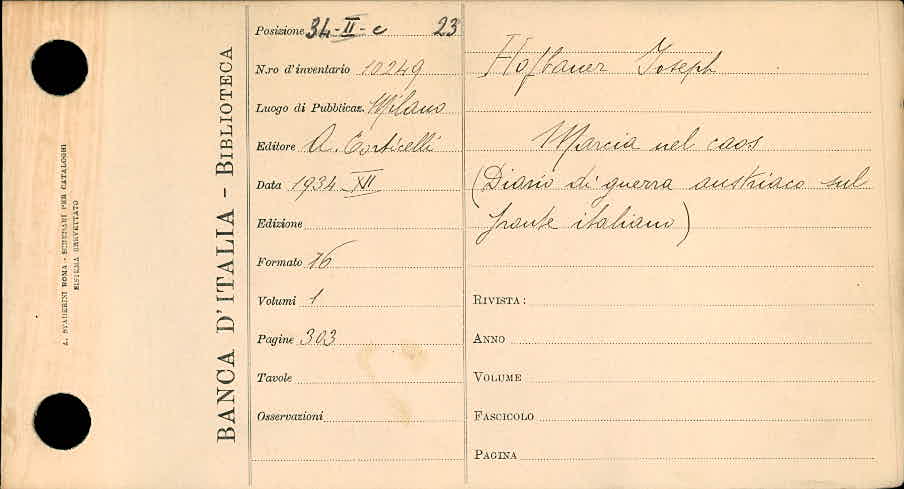 A. STADERINI ROMA - SCHEDARI PER CATALOGHI
SISTEMA BREVETTATO
BANCA D'ITALIA - BIBLIOTECA
Posizione 34-II-c 23
N.ro d'inventario 10249
Luogo di Pubblicaz. Milano
Editore A. Corticelli
Data 1934 XII
Edizione
Formato 16
Volumi 1
Pagine 303
Tavole
Osservazioni
Hofbauer Joseph
Marcia nel caos
(Diario di guerra austriaco sul
fronte italiano)
RIVISTA:
ANNO
VOLUME
FASCICOLO
PAGINA